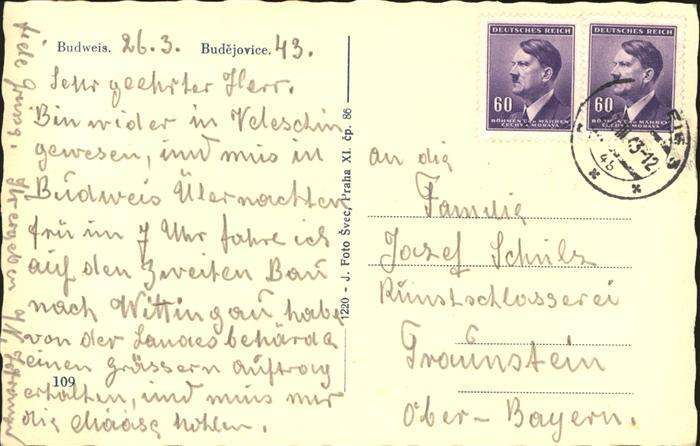 Budweis. 26.3. Budějovice. 43.
Sehr geehrter Herr.
Bin wider in Veleschin
gewesen, und mus in
Budweis Übernachten
frü im 7 Uhr fahre ich
auf den Zweiten Bau
nach Wittingau habe
von der Landesbehörde
einen grässern auftrag
erhalten, und mus mir
die Maase hohlen.
109
1220 - J. Foto Švec, Praha XI. čp. 86
DEUTSCHES REICH
60
BÖHMEN UND MÄHREN
ČECHY A MORAVA
DEUTSCHES REICH
60
BÖHMEN UND MÄHREN
ČECHY A MORAVA
an die
Familie
Josef Schülz
Kunstschlosserei
Traunstein
Ober-Bayern.